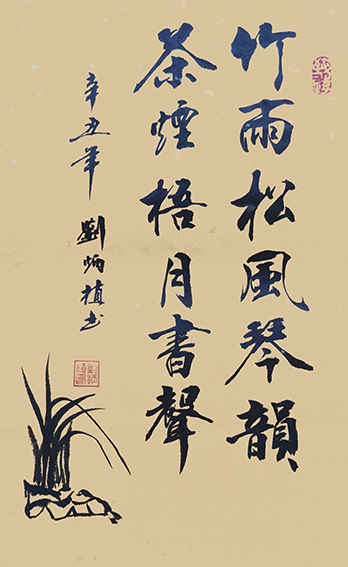 竹雨松風琴韻
茶煙梧月書聲
辛丑年
劉炳植书